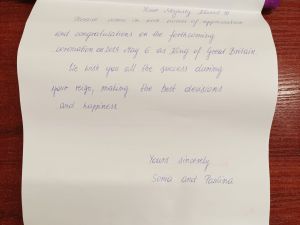 Your Majesty
and congratulations on the forthcoming
coronation on 2023 May 6 as King of Great Britain.
We wish you all the success during
your reign, making the best decisions
and happiness.
Yours sincerely
Sonia and Paulina